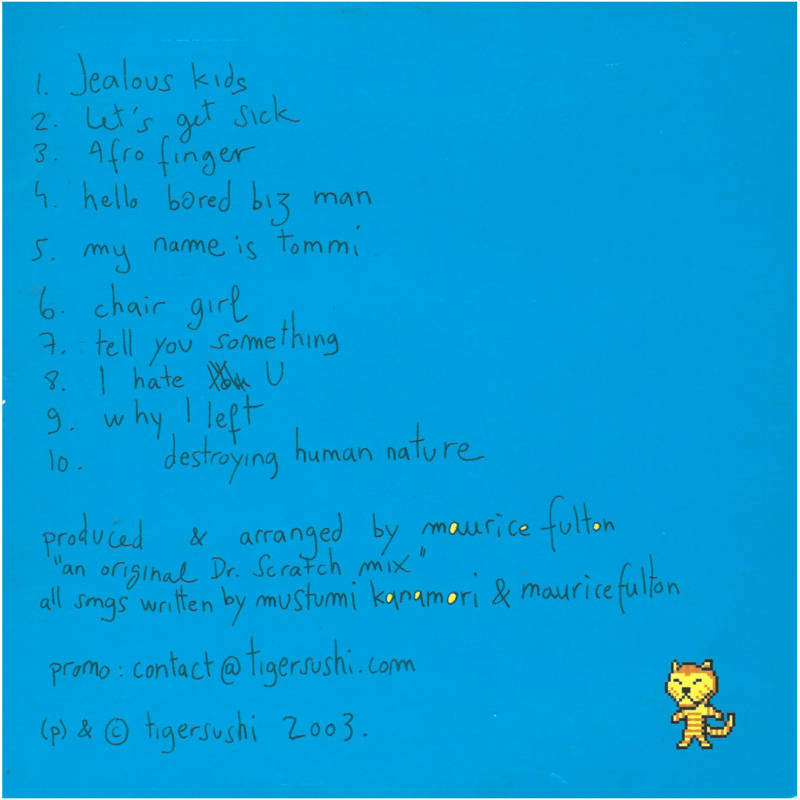 1. Jealous kids
2. Let's get sick
3. Afro finger
4. hello bored biz man
5. my name is tommi
6. chair girl
7. tell you something
8. I hate U
9. why I left
10. destroying human nature
produced & arranged by maurice fulton
"an original Dr. Scratch mix"
all songs written by mustumi kanamori & maurice fulton
promo : contact@tigersushi.com
(p) & © tigersushi 2003.